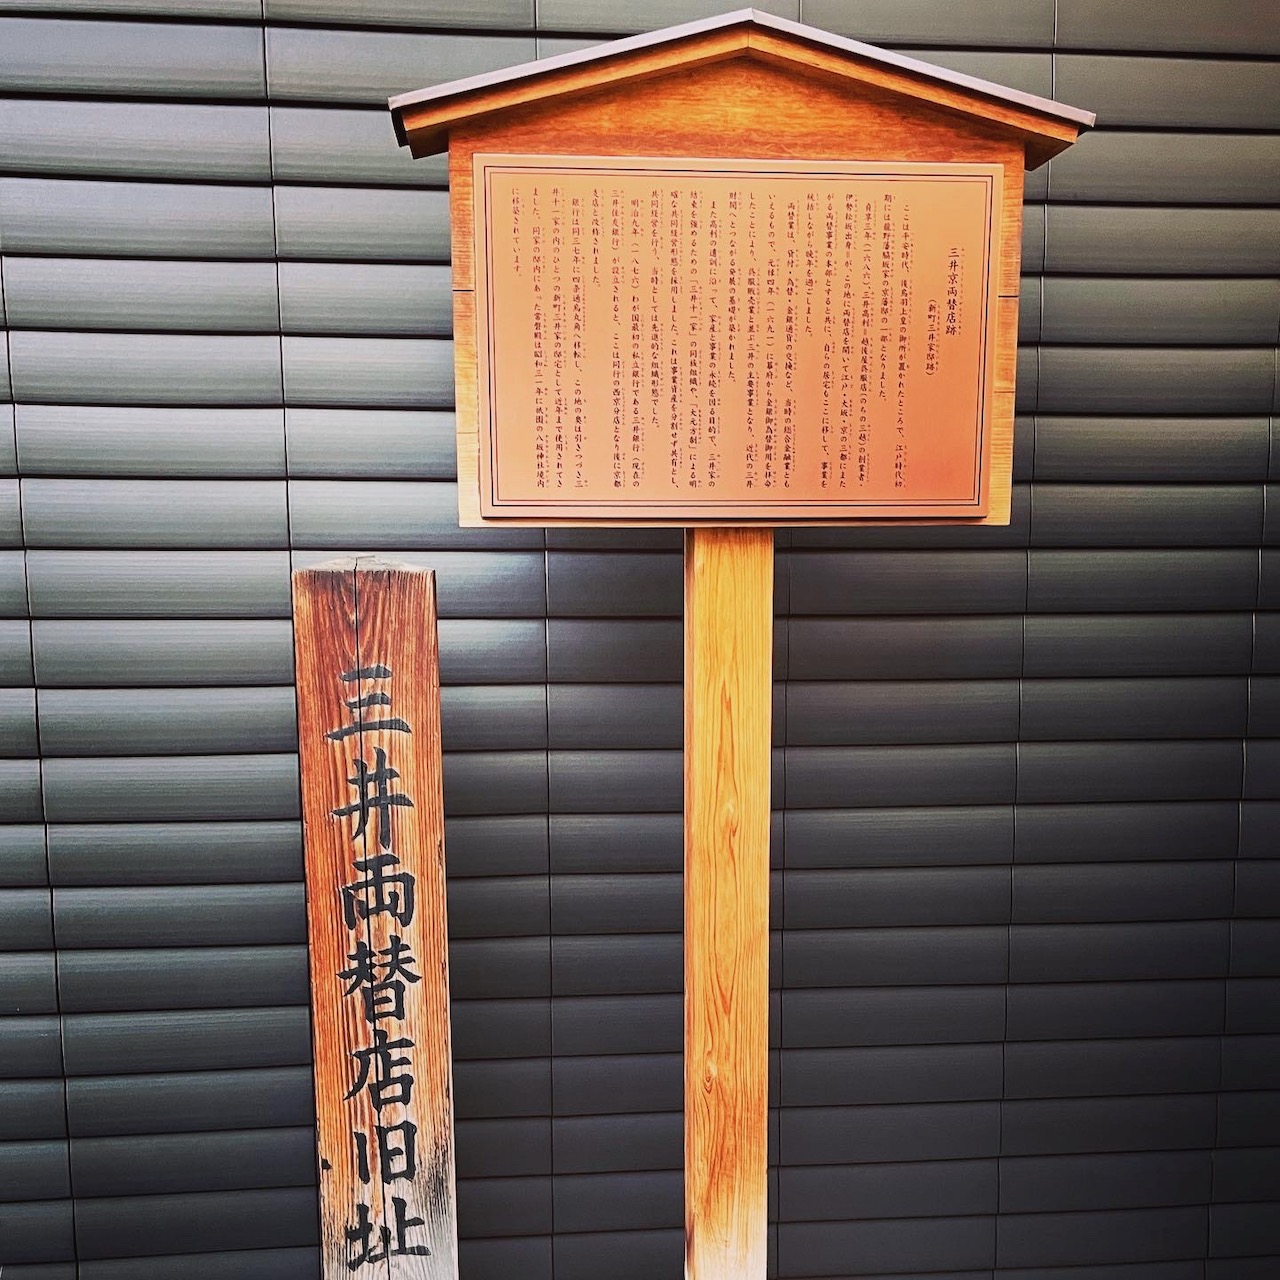 三井京両替店跡
（新町三井家邸跡）
ここは平安時代、後鳥羽上皇の御所が置かれたところで、江戸時代初
期には龍野藩脇坂家の京藩邸の一部となりました。
貞享三年（一六八六）、三井高利＝越後屋呉服店（のちの三越）の創業者・
伊勢松坂出身＝が、この地に両替店を開いて江戸・大坂・京の三都にまた
がる両替事業の本部とすると共に、自らの居宅もここに移して、事業を
統括しながら晩年を過ごしました。
両替業は、貸付・為替・金銀通貨の交換など、当時の総合金融業とも
いえるもので、元禄四年（一六九一）に幕府から金銀御為替御用を拝命
したことにより、呉服販売業と並ぶ三井の主要事業となり、近代の三井
財閥へとつながる発展の基礎が築かれました。
また高利の遺訓に沿って、家産と事業の永続を図る目的で、三井家の
結束を強めるための「三井十一家」の同族組織や、「大元方制」による明
確な共同経営形態を採用しました。これは事業資産を分割せず共有とし、
共同経営を行う、当時としては先進的な組織形態でした。
明治九年（一八七六）わが国最初の私立銀行である三井銀行（現在の
三井住友銀行）が設立されると、ここは同行の西京分店となり後に京都
支店と改称されました。
銀行は同三七年に四条通烏丸角へ移転し、この地の奥は引きつづき三
井十一家の内のひとつの新町三井家の邸宅として近年まで使用されてき
ました。同家の邸内にあった常磐殿は昭和三一年に祇園の八坂神社境内
に移築されています。
三井両替店旧址